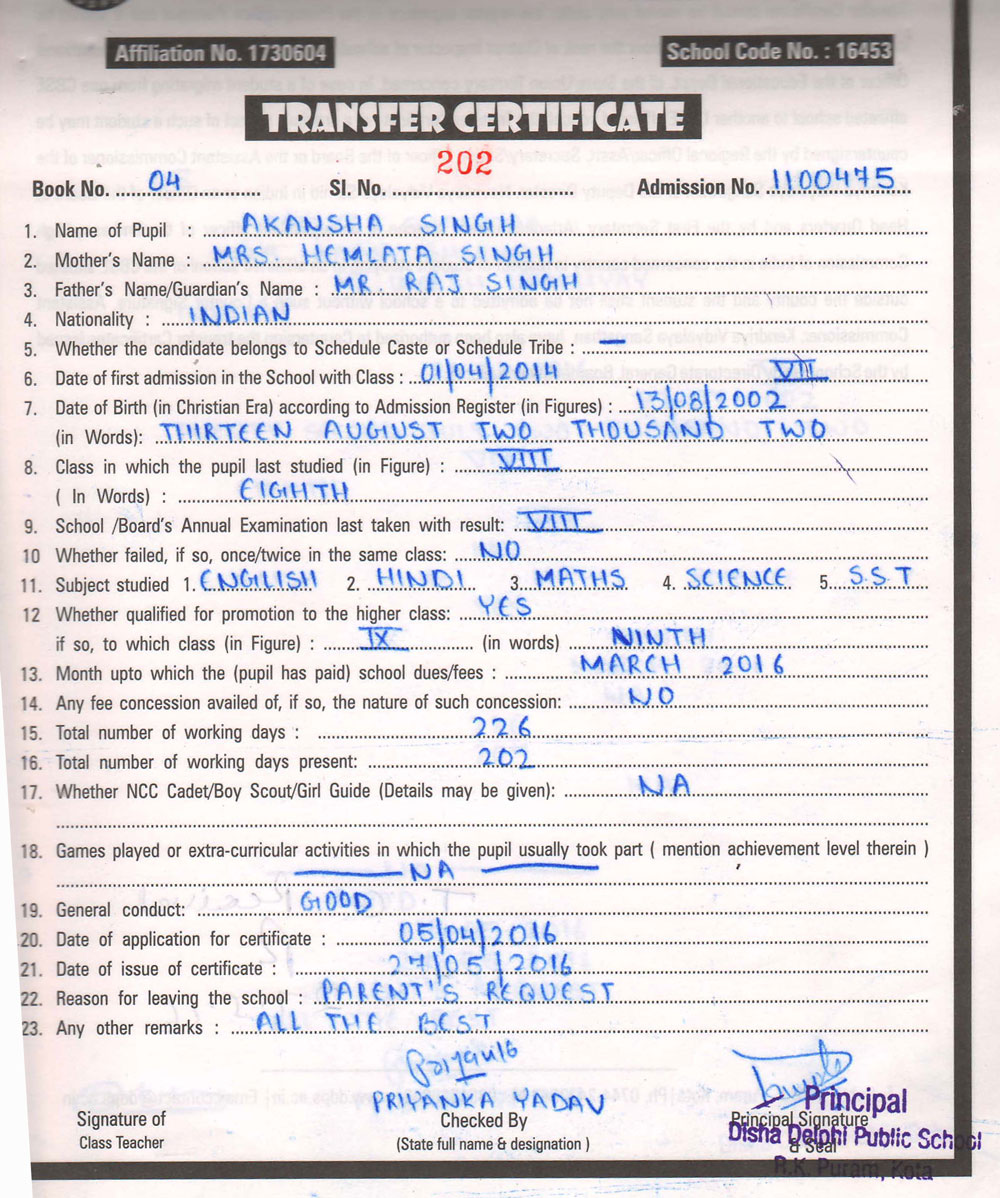 Affiliation No. 1730604 School Code No. : 16453
TRANSFER CERTIFICATE
202
Book No. 04 Sl. No. Admission No. 1100475
1. Name of Pupil : AKANSHA SINGH
2. Mother's Name : MRS. HEMLATA SINGH
3. Father's Name/Guardian's Name : MR. RAJ SINGH
4. Nationality : INDIAN
5. Whether the candidate belongs to Schedule Caste or Schedule Tribe : —
6. Date of first admission in the School with Class : 01/04/2014 VII
7. Date of Birth (in Christian Era) according to Admission Register (in Figures) : 13/08/2002
(in Words): THIRTEEN AUGUST TWO THOUSAND TWO
8. Class in which the pupil last studied (in Figure) : VIII
( In Words) : EIGHTH
9. School /Board's Annual Examination last taken with result: VIII
10 Whether failed, if so, once/twice in the same class: NO
11. Subject studied 1. ENGLISH 2. HINDI 3. MATHS 4. SCIENCE 5. S.S.T
12 Whether qualified for promotion to the higher class: YES
if so, to which class (in Figure) : IX (in words) NINTH
13. Month upto which the (pupil has paid) school dues/fees : MARCH 2016
14. Any fee concession availed of, if so, the nature of such concession: NO
15. Total number of working days : 226
16. Total number of working days present: 202
17. Whether NCC Cadet/Boy Scout/Girl Guide (Details may be given): NA
18. Games played or extra-curricular activities in which the pupil usually took part ( mention achievement level therein )
NA
19. General conduct: GOOD
20. Date of application for certificate : 05/04/2016
21. Date of issue of certificate : 27/05/2016
22. Reason for leaving the school : PARENT'S REQUEST
23. Any other remarks : ALL THE BEST
PRIYANKA YADAV
Principal
Signature of Checked By Principal Signature
Disha Delphi Public School
Class Teacher (State full name & designation ) & Seal
R.K. Puram, Kota